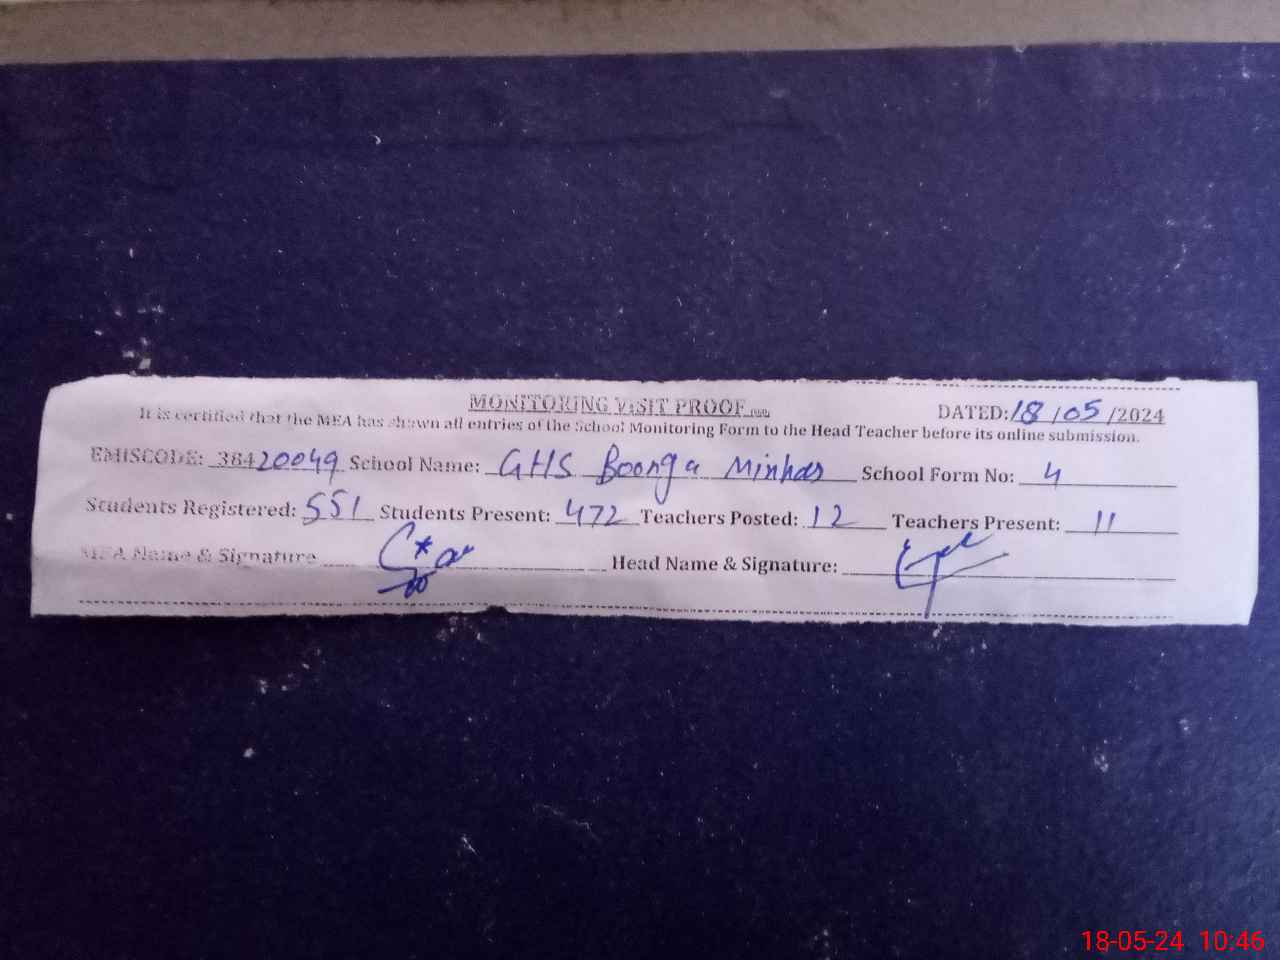 MONITORING VISIT PROOF
DATED: 18/05/2024
It is certified that the MEA has shown all entries of the School Monitoring Form to the Head Teacher before its online submission.
EMISCODE: 38420049 School Name: GHS Boonga Minhas School Form No: 4
Students Registered: 551 Students Present: 472 Teachers Posted: 12 Teachers Present: 11
MEA Name & Signature Head Name & Signature:
18-05-24 10:46